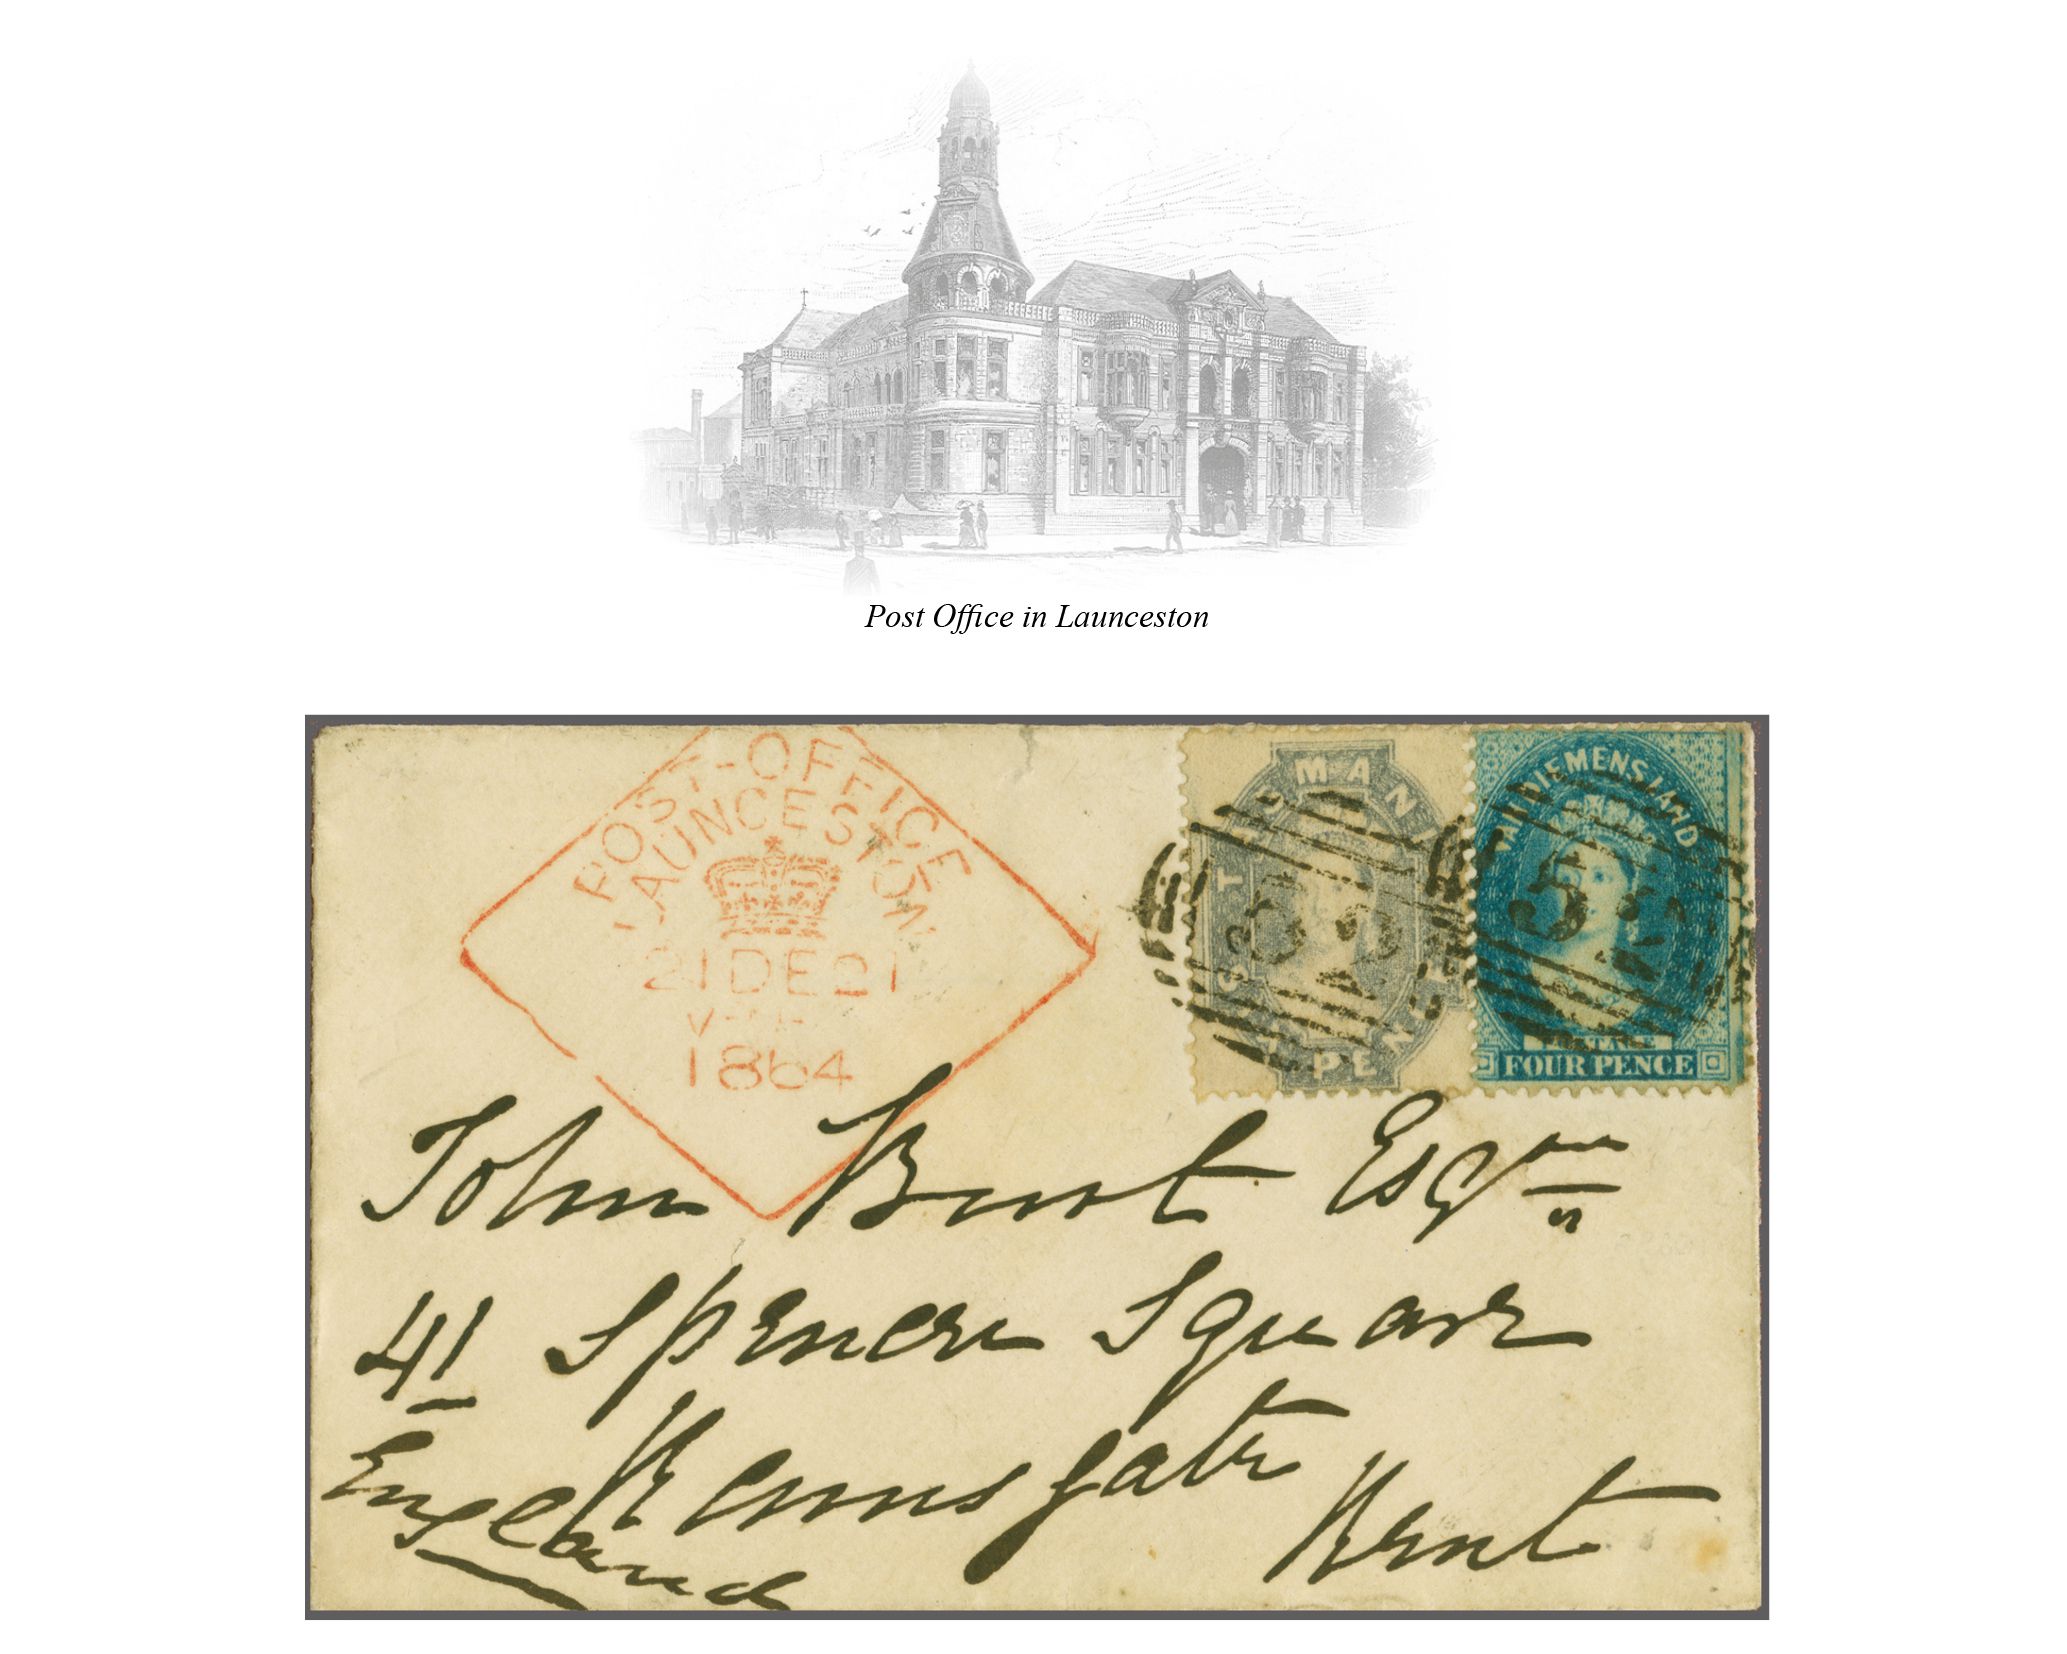 Post Office in Launceston
POST-OFFICE
LAUNCESTON
21 DE 21
1864
TASMANIA
SIX PENCE
VAN DIEMENS LAND
POSTAGE
FOUR PENCE
John Burt Esqre
41 Spencer Square
Ramsgate
Kent
England